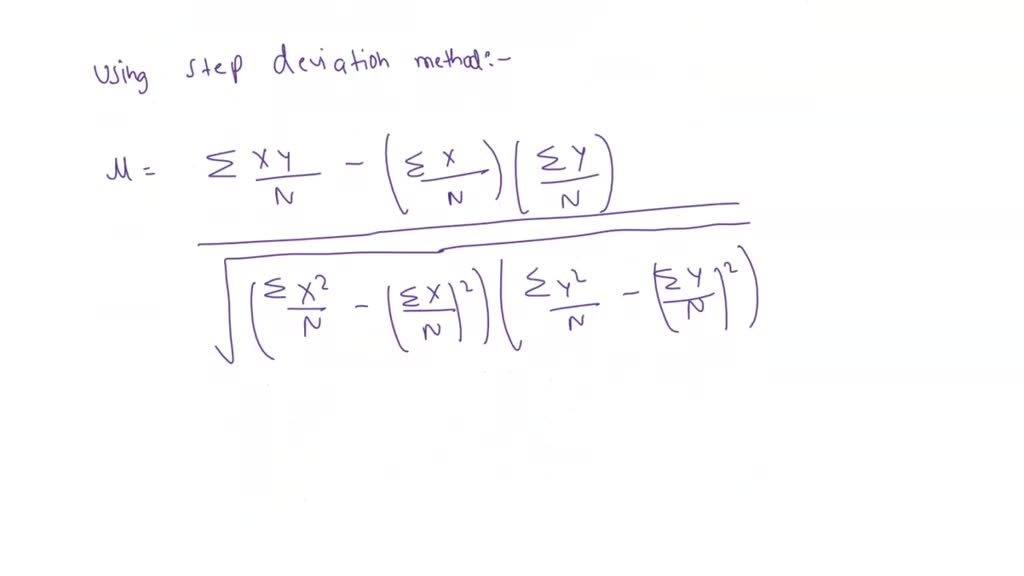 Using step deviation method:-
μ = (Σ XY/N - (Σ X/N) (Σ Y/N)) / √((Σ X²/N - (Σ X/N)²) (Σ Y²/N - (Σ Y/N)²))